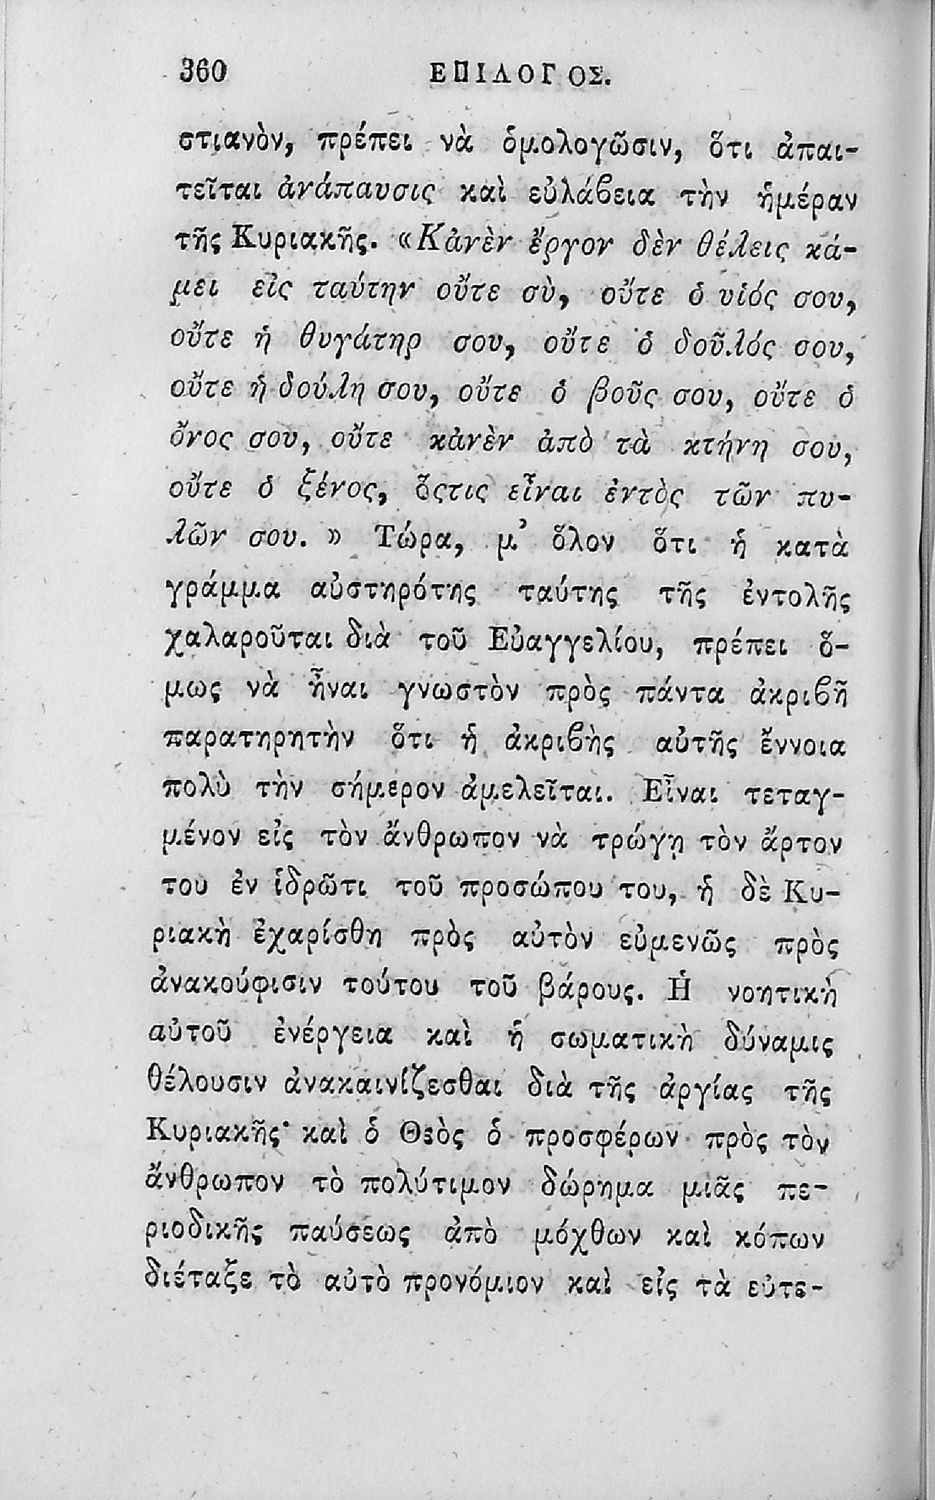 360 ΕΠΙΛΟΓΟΣ.
στιανὸν, πρέπει νὰ ὁμολογῶσιν, ὅτι ἀπαι-
τεῖται ἀνάπαυσις καὶ εὐλάϐεια τὴν ἡμέραν
τῆς Κυριακῆς. «Κἀνὲν ἔργον δὲν θέλεις κά-
μει εἰς ταύτην οὔτε σὺ, οὔτε ὁ υἱός σου,
οὔτε ἡ θυγάτηρ σου, οὔτε ὁ δοῦλός σου,
οὔτε ἡ δούλη σου, οὔτε ὁ βοῦς σου, οὔτε ὁ
ὄνος σου, οὔτε κἀνὲν ἀπὸ τὰ κτήνη σου,
οὔτε ὁ ξένος, ὅςτις εἶναι ἐντὸς τῶν πυ-
λῶν σου. » Τώρα, μ’ ὅλον ὅτι ἡ κατὰ
γράμμα αὐστηρότης ταύτης τῆς ἐντολῆς
χαλαροῦται διὰ τοῦ Εὐαγγελίου, πρέπει ὅ-
μως νὰ ἦναι γνωστὸν πρὸς πάντα ἀκριϐῆ
παρατηρητὴν ὅτι ἡ ἀκριϐὴς αὐτῆς ἔννοια
πολὺ τὴν σήμερον ἀμελεῖται. Εἶναι τεταγ-
μένον εἰς τὸν ἄνθρωπον νὰ τρώγῃ τὸν ἄρτον
του ἐν ἱδρῶτι τοῦ προσώπου του, ἡ δὲ Κυ-
ριακὴ ἐχαρίσθη πρὸς αὐτὸν εὐμενῶς πρὸς
ἀνακούφισιν τούτου τοῦ βάρους. Ἡ νοητικὴ
αὐτοῦ ἐνέργεια καὶ ἡ σωματικὴ δύναμις
θέλουσιν ἀνακαινίζεσθαι διὰ τῆς ἀργίας τῆς
Κυριακῆς· καὶ ὁ Θεὸς ὁ προσφέρων πρὸς τὸν
ἄνθρωπον τὸ πολύτιμον δώρημα μιᾶς πε-
ριοδικῆς παύσεως ἀπὸ μόχθων καὶ κόπων
διέταξε τὸ αὐτὸ προνόμιον καὶ εἰς τὰ εὐτε-